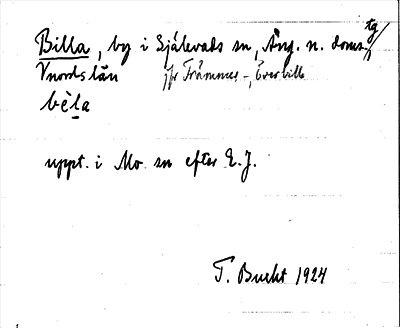 Billa, by i Själevads sn, Ång. n. doms-
tg
Vnords län jfr Främmer-, Överbilla
bèla
uppt. i Mo sn efter E.J.
T. Bucht 1924